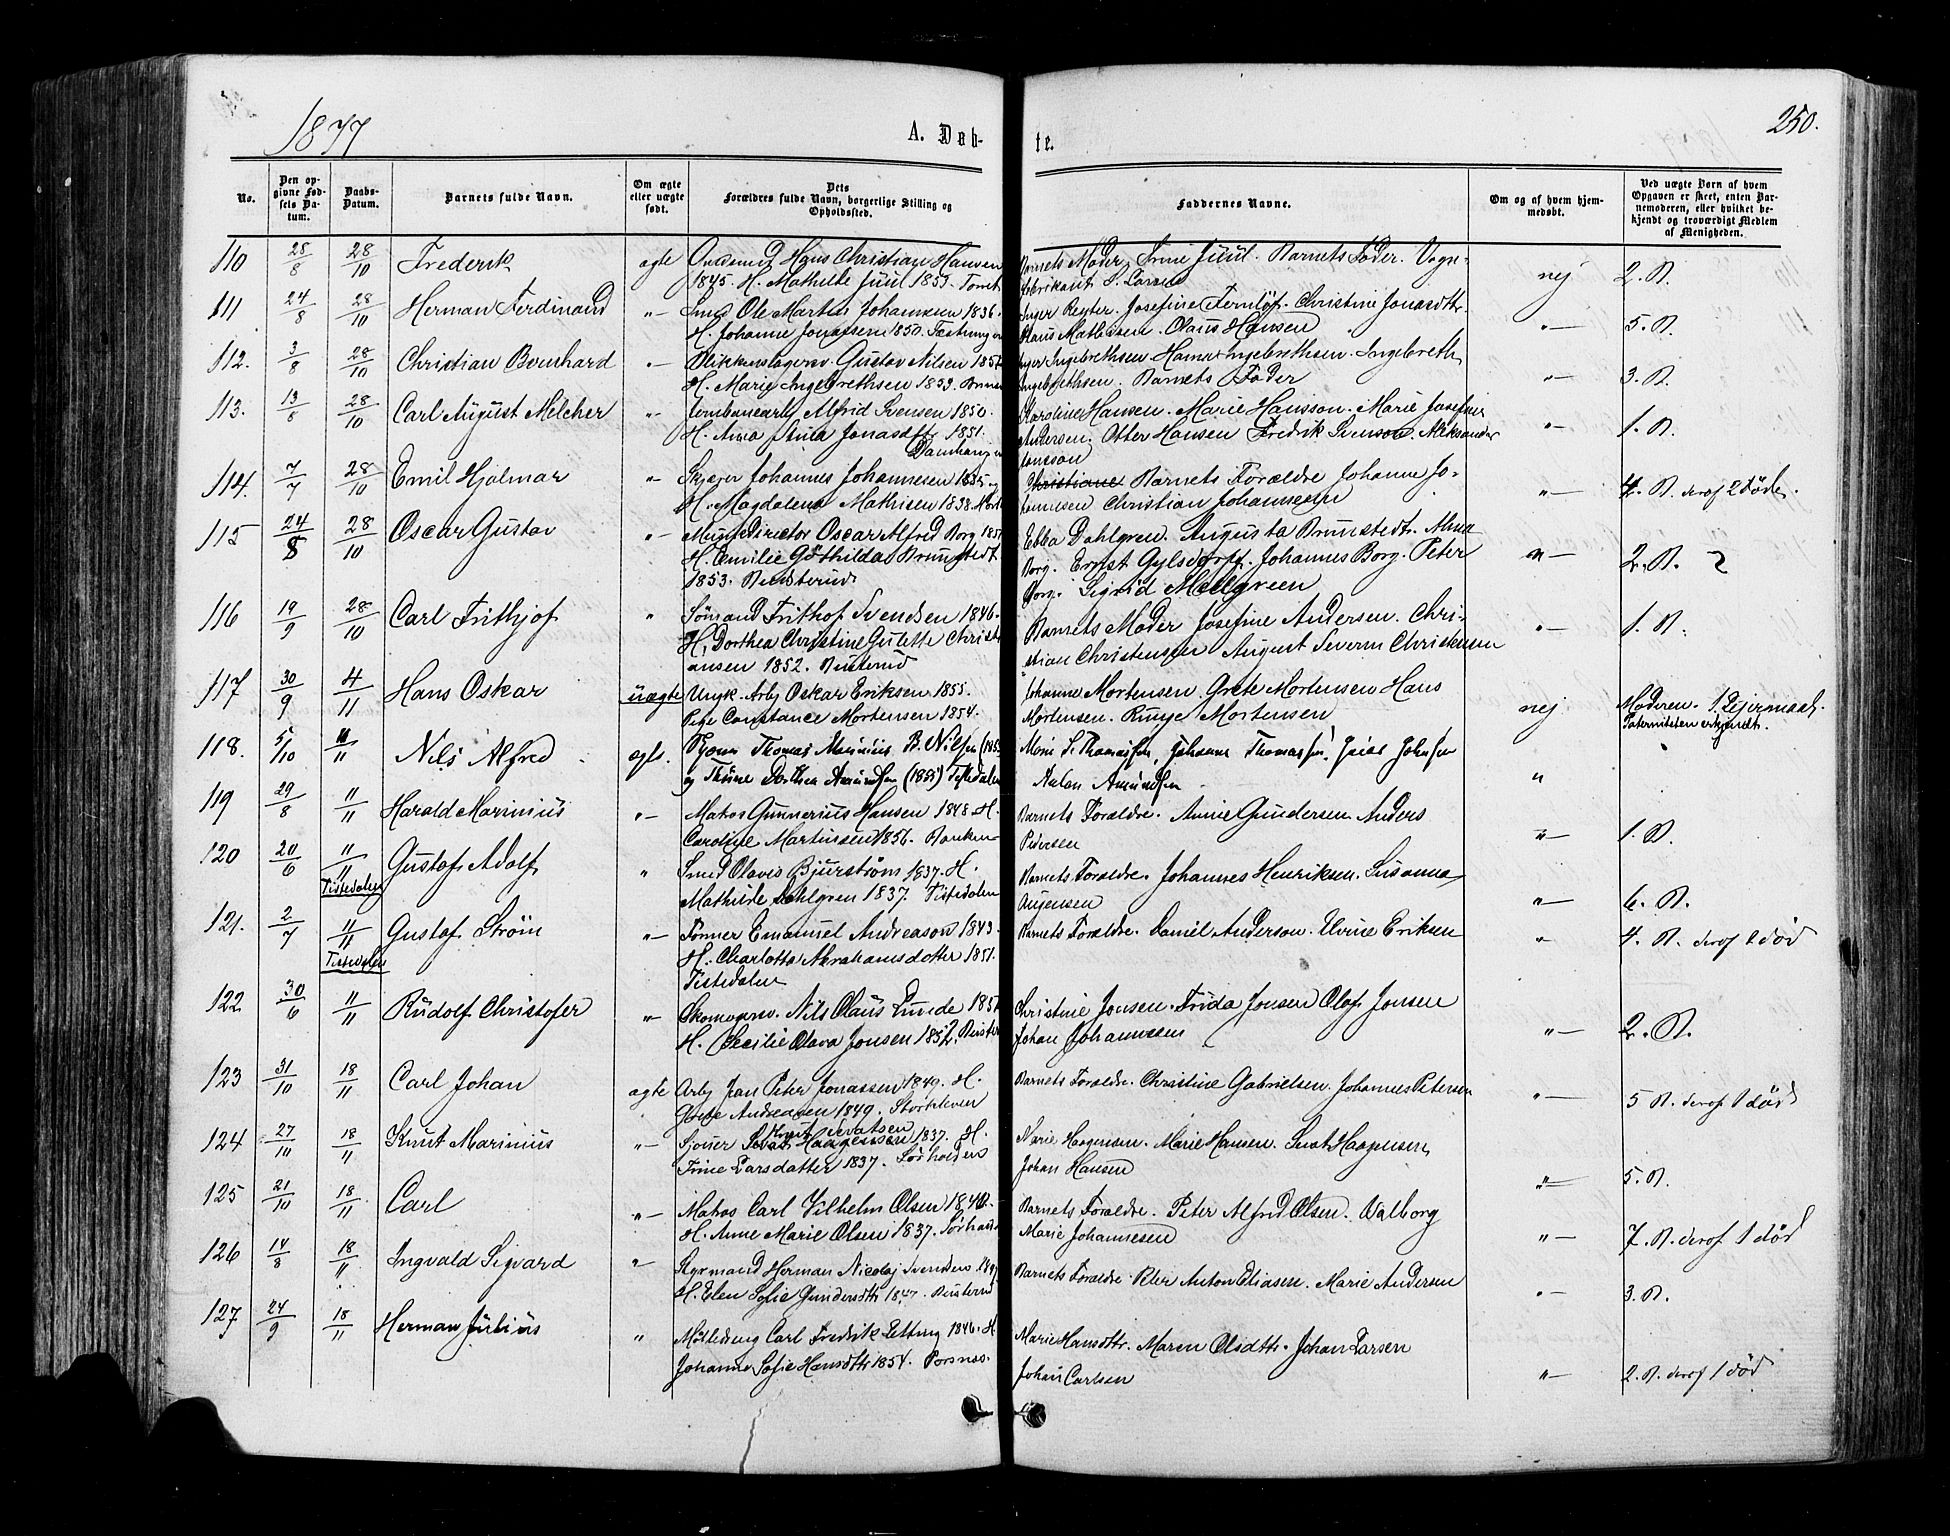 1877
A. Døb-
te.
250.
No.
Den op-
givne Fød-
sels Da-
tum.
Daabs-
Datum.
Barnets fulde Navn.
Om ægte
eller uægte
født.
Dets
Forældres fulde Navn, borgerlige Stilling og
Opholdssted.
Faddernes Navne.
Om og af hvem hjem-
medøbt.
Ved uægte Børn af hvem
Opgaven er skeet, enten Bar-
nemoderen, eller hvilket be-
kjendt og troværdigt Medlem
af Menigheden.
110 28/8 28/10 Frederik ægte Hans Christian Hansen Barnets Moder. Trine Juul. Barnets Fader. Vogn-
1845. H. Mathilde Juul 1853. fabrikant S. Larsen nej 2. B.
111 24/8 28/10 Herman Ferdinand "— Smed Ole Martin Johannesen 1836. Inger Reyter. Josefine Fernlöf. Christine Jonasdtr.
H. Johanne Jonassen 1850. Fæstningen Klaus Mathiesen. Olaus Hansen "— 5. B.
112. 3/8 28/10 Christian Bernhard "— Blikkenslagersv. Gustav Nilsen Inger Ingebrethsen Hanna Ingebrethsen. Ingebreth
H. Marie Ingebrethsen 1853. Ingebrethsen. Barnets Fader "— 3. B.
113. 13/8 28/10 Carl August Melcher "— Jernbanearb. Alfrid Svensen 1850. Karoline Hansen. Marie Hansson. Marie Josefine
H. Anna Stina Jonasdtr 1851. Andersen. Otter Hansen Fredrik Svenson. Aleksander "— 1. B.
Damhaugen Jonsson
114. 7/7 28/10 Emil Hjalmar "— Johannes Johannesen 1835 og Christiane Barnets Forældre Johanne Jo-
H. Magdalena Mathisen 1838. hannesen Christian Johannesen "— 4. B. deraf 2 døde.
115 24/8 28/10 Oscar Gustav "— Musikdirector Oscar Alfred Borg Ebba Dahlgren. Augusta Brunstedt. Alma
H. Emilie Gothilda Brunstedt Borg. Ernst Gylsdorff. Johannes Borg. Peter "— 2. B. 2
1853. Busterud Borg. Sigrid Mellgreen
116 19/9 28/10 Carl Frithjof " Sømand Frithof Svendsen 1846. Barnets Moder Josefine Andersen. Chri-
H. Dorthea Christine Gulette Christi stian Christensen August Severin Christensen "— 1. B.
ansen 1852. Busterud
117 30/9 4/11 Hans Oskar uægte Ungk. Arb. Oskar Eriksen 1855. Johanne Mortensen. Grete Mortensen Hans
Pige Constance Mortensen 1854. Mortensen. Mortensen nej Moderen. 1. Leiermaal.
Paterniteten erkjendt.
118. 5/10 11/11 Nils Alfred ægte. Thomas Marinius B. Nilsen Marie S. Thomassen, Johanne Thomassen. Johnsen
og Thrine Dorthea Amundsen (1855) Tistedalen Anton Amundsen "
119 29/8 11/11 Harald Marinius "— Matros Gunnerius Hansen 1848 H. Barnets Forældre. Annie Gundersen Anders
Caroline Martinsen 1856. Banken Pedersen "— 1. B.
120 20/6 11/11 Tistedalen Gustaf Adolf " Smed Olaves Bjurstrøm 1837. H. Barnets Forældre. Johannes Henriksen. Susanna
Mathilde Dahlgren 1837. Tistedalen Jørgensen "— 6. B.
121. 2/7 11/11 Tistedalen Gustaf Strøm "— Former Emanuel Andreason 1843. Barnets Forældre. Daniel Anderson. Ulrine Eriksen " 4. B. deraf 1 død
H. Charlotta Abrahamsdotter 1851.
Tistedalen
122 30/6 11/11 Rudolf Christofer "— Skomagersv. Nils Olaus Lunde Christine Jonsen. Frida Jonsen Olof Jonsen
H. Cecilie Olava Jonsen 1852. Johan Johannesen "— 2. B.
123 31/10 18/11 Carl Johan ægte Arb. Jean Peter Jonassen 1849. H. Barnets Forældre. Christine Gabrielsen. Johannes Petersen
Grete Andreasen 1849. Storkleven "— 5 B. deraf 1 død
124 27/10 18/11 Knut Marinius "— Haagensen 1837. H. Marie Haagensen. Marie Hansen. Haagensen
Trine Larsdatter 1837. Sørhaldens Johan Hansen "— 5. B.
125 21/10 18/11 Carl "— Matros Carl Vilhelm Olsen Barnets Forældre. Peter Alfred Olsen. Valborg
H. Anne Marie Olsen 1837. Marie Johannesen "— 7. B. deraf 1 død
126 14/8 18/11 Ingvald Sigvard "— Styrmand Herman Nicolaj Svendsen Barnets Forældre. Peter Anton Eliasen. Marie Andersen
H. Elen Sofie Gundersdtr 1847. Busterud "— 3. B.
127 24/9 18/11 Herman Julius " Carl Fredrik 1846. H. Marie Hansdtr. Maren Olsdtr. Johan Larsen
Johanne Sofie Hansdtr 1854. Porsnæs. Johan Carlsen "— 2. B. deraf 1 død